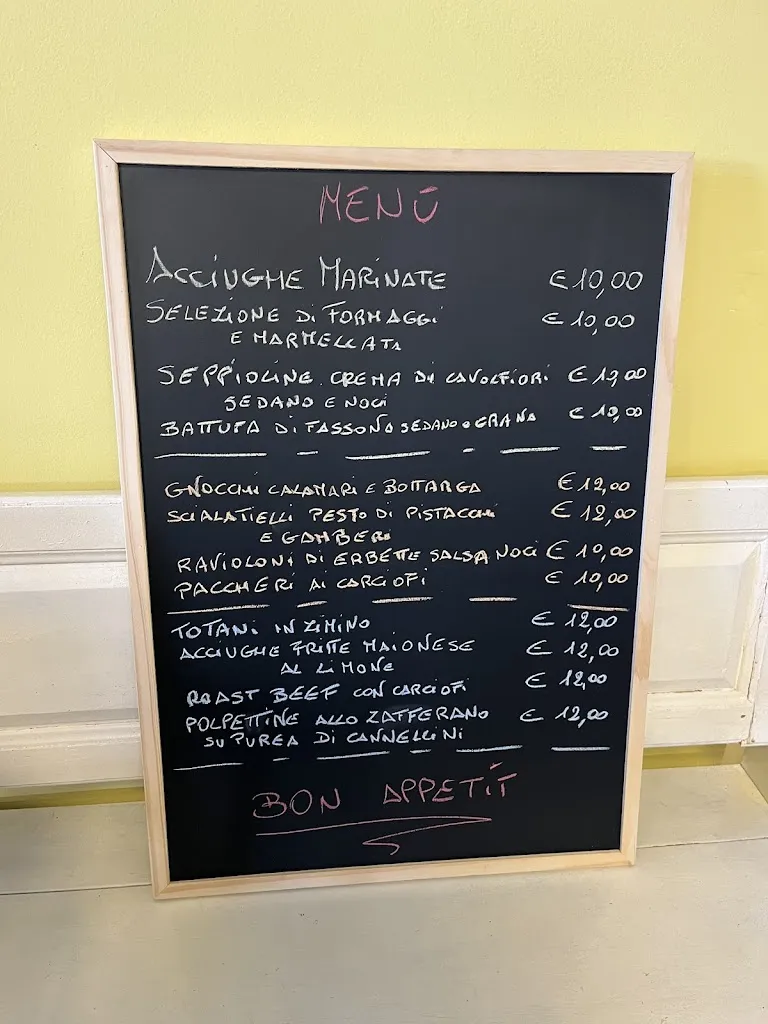 MENÙ
ACCIUGHE MARINATE € 10,00
SELEZIONE DI FORMAGGI € 10,00
E MARMELLATA
SEPPIOLINE CREMA DI CAVOLFIORI € 10,00
SEDANO E NOCI
BATTUTA DI FASSONA SEDANO e GRANA € 10,00
GNOCCHI CALAMARI E BOTTARGA € 12,00
SCIALATIELLI PESTO DI PISTACCHI € 12,00
E GAMBERI
RAVIOLONI DI ERBETTE SALSA NOCI € 10,00
PACCHERI AI CARCIOFI € 10,00
TOTANI IN ZIMINO € 12,00
ACCIUGHE FRITTE MAIONESE € 12,00
AL LIMONE
ROAST BEEF CON CARCIOFI € 12,00
POLPETTINE ALLO ZAFFERANO € 12,00
SU PUREA DI CANNELLINI
BON APPETIT